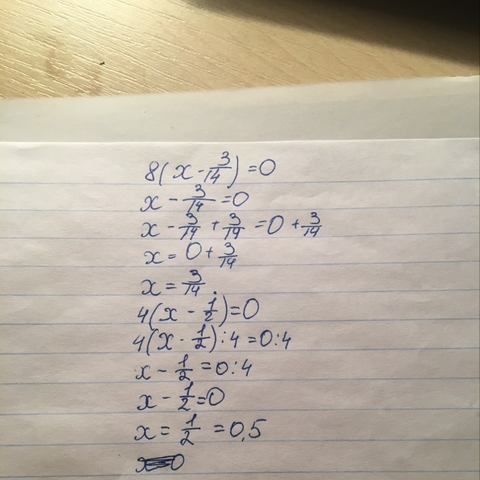 8(x - 3/14) = 0
x - 3/14 = 0
x - 3/14 + 3/14 = 0 + 3/14
x = 0 + 3/14
x = 3/14.
4(x - 1/2) = 0
4(x - 1/2) : 4 = 0 : 4
x - 1/2 = 0 : 4
x - 1/2 = 0
x = 1/2 = 0,5